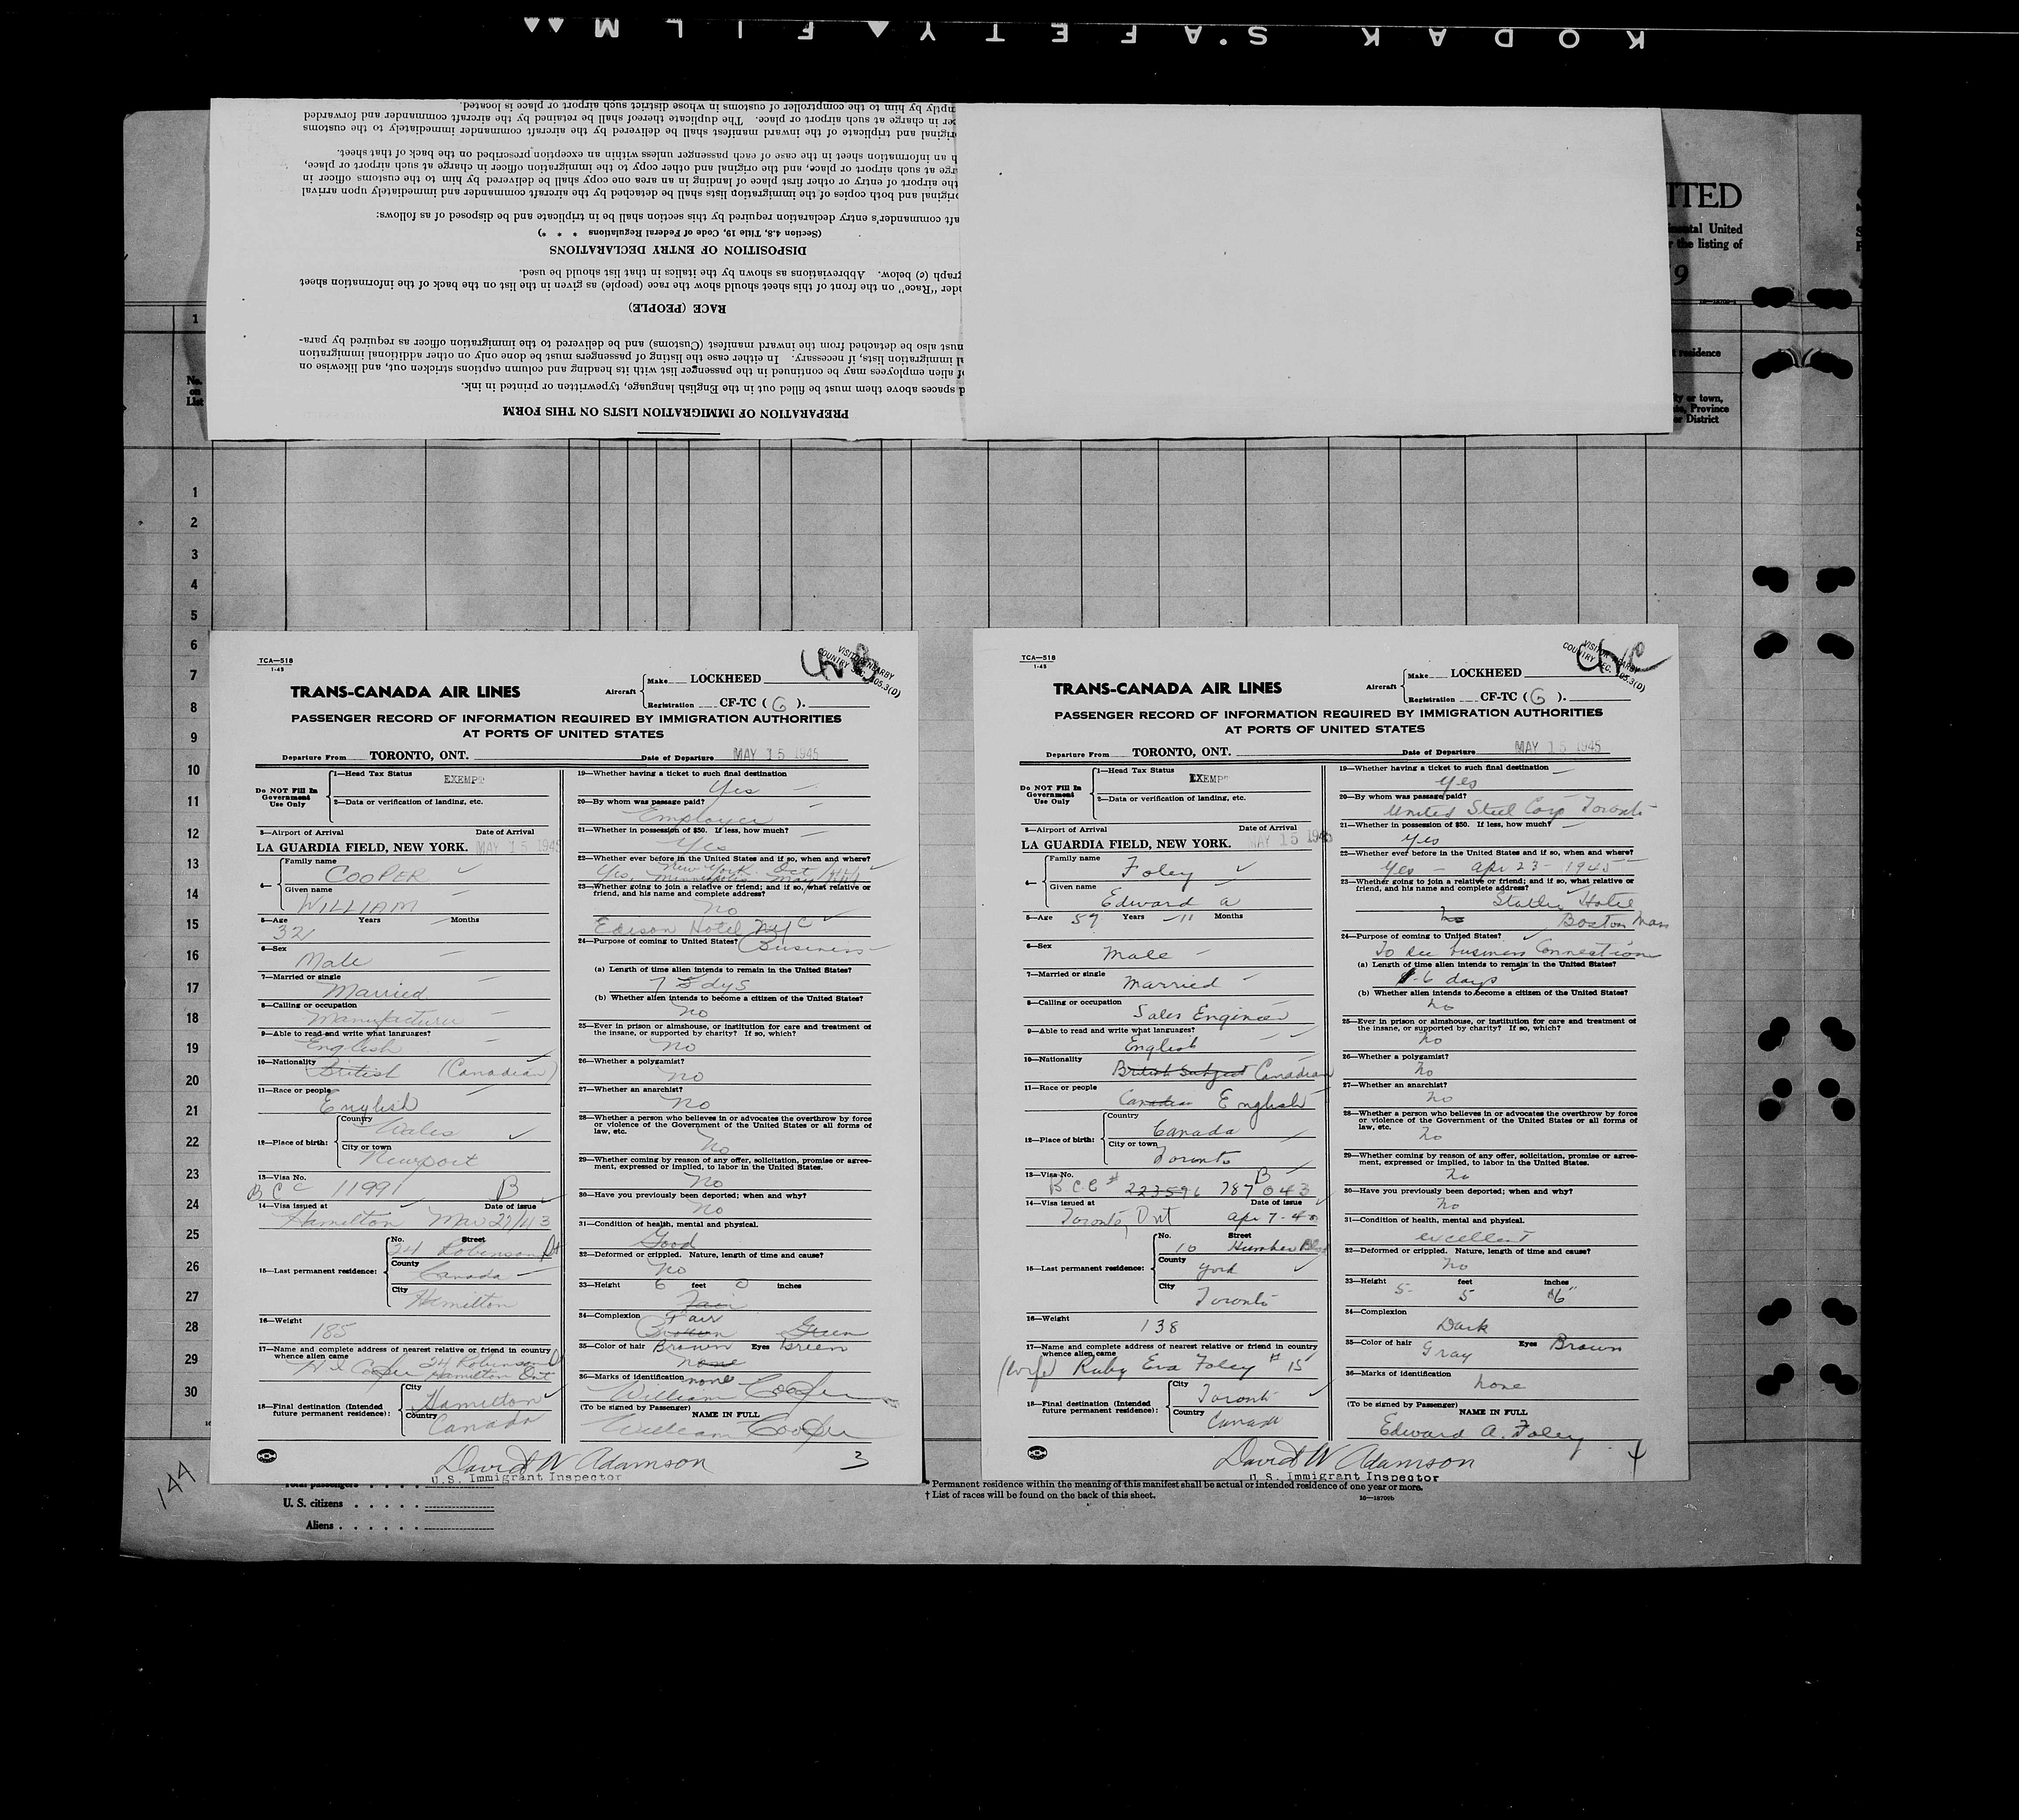 KODAK SAFETY FILM
PREPARATION OF IMMIGRATION LISTS ON THIS FORM
d spaces above them must be filled out in the English language, typewritten or printed in ink.
of alien employees may be continued in the passenger list with its heading and column captions stricken out, and likewise on
al immigration lists, if necessary. In either case the listing of passengers must be done only on other additional immigration
must also be detached from the inward manifest (Customs) and be delivered to the immigration officer as required by para-
RACE (PEOPLE)
nder "Race" on the front of this sheet should show the race (people) as given in the list on the back of the information sheet
graph (c) below. Abbreviations as shown by the italics in that list should be used.
DISPOSITION OF ENTRY DECLARATIONS
(Section 4.8, Title 19, Code of Federal Regulations * * *)
aft commander's entry declaration required by this section shall be in triplicate and be disposed of as follows:
original and both copies of the immigration lists shall be detached by the aircraft commander and immediately upon arrival
the airport of entry or other first place of landing in an area one copy shall be delivered by him to the customs officer in
arge at such airport or place, and the original and other copy to the immigration officer in charge at such airport or place,
h an information sheet in the case of each passenger unless within an exception prescribed on the back of that sheet.
riginal and triplicate of the inward manifest shall be delivered by the aircraft commander immediately to the customs
er in charge at such airport or place. The duplicate thereof shall be retained by the aircraft commander and forwarded
mptly by him to the comptroller of customs in whose district such airport or place is located.
ITED
inental United
r the listing of
9
residence
ty or town,
te, Province
er District
1
No.
on
List
1
2
3
4
5
6
7
8
9
10
11
12
13
14
15
16
17
18
19
20
21
22
23
24
25
26
27
28
29
30
TCA—518
1-45
VISITOR NEARBY
COUNTRY SEC. 105.3(D)
TRANS-CANADA AIR LINES
Aircraft
Make LOCKHEED
Registration CF-TC ( G ).
PASSENGER RECORD OF INFORMATION REQUIRED BY IMMIGRATION AUTHORITIES
AT PORTS OF UNITED STATES
Departure From TORONTO, ONT. Date of Departure MAY 15 1945
Do NOT Fill In
Government
Use Only
1—Head Tax Status EXEMPT
2—Data or verification of landing, etc.
3—Airport of Arrival Date of Arrival
LA GUARDIA FIELD, NEW YORK. MAY 15 1945
4— Family name COOPER
Given name WILLIAM
5—Age Years Months
32
6—Sex
Male
7—Married or single
Married
8—Calling or occupation
Manufacturer
9—Able to read and write what languages?
English
10—Nationality
British (Canadian)
11—Race or people
English
12—Place of birth: Country Wales
City or town Newport
13—Visa No.
BCC 11991 B
14—Visa issued at Date of issue
Hamilton Mar 27/43
15—Last permanent residence: No. Street
24 Robinson St
County
Canada
City
Hamilton
16—Weight
185
17—Name and complete address of nearest relative or friend in country
whence alien came
Cooper 24 Robinson
Hamilton Ont
18—Final destination (Intended
future permanent residence): City Hamilton
Country Canada
19—Whether having a ticket to such final destination
Yes
20—By whom was passage paid?
Employer
21—Whether in possession of $50. If less, how much?
Yes
22—Whether ever before in the United States and if so, when and where?
Yes, New York Oct /44
Minneapolis May /44
23—Whether going to join a relative or friend; and if so, what relative or
friend, and his name and complete address?
No
Edison Hotel NYC
24—Purpose of coming to United States? Business
(a) Length of time alien intends to remain in the United States?
7 dys
(b) Whether alien intends to become a citizen of the United States?
No
25—Ever in prison or almshouse, or institution for care and treatment of
the insane, or supported by charity? If so, which?
No
26—Whether a polygamist?
No
27—Whether an anarchist?
No
28—Whether a person who believes in or advocates the overthrow by force
or violence of the Government of the United States or all forms of
law, etc.
No
29—Whether coming by reason of any offer, solicitation, promise or agree-
ment, expressed or implied, to labor in the United States.
No
30—Have you previously been deported; when and why?
No
31—Condition of health, mental and physical.
Good
32—Deformed or crippled. Nature, length of time and cause?
No
33—Height 6 feet 0 inches
Fair
34—Complexion Fair
Brown Green
35—Color of hair Brown Eyes Green
none
36—Marks of identification none
William Cooper
(To be signed by Passenger) NAME IN FULL
William Cooper
David W Adamson 3
U.S. Immigrant Inspector
TCA—518
1-45
VISITOR NEARBY
COUNTRY SEC. 105.3(D)
TRANS-CANADA AIR LINES
Aircraft
Make LOCKHEED
Registration CF-TC ( G ).
PASSENGER RECORD OF INFORMATION REQUIRED BY IMMIGRATION AUTHORITIES
AT PORTS OF UNITED STATES
Departure From TORONTO, ONT. Date of Departure MAY 15 1945
Do NOT Fill In
Government
Use Only
1—Head Tax Status EXEMPT
2—Data or verification of landing, etc.
3—Airport of Arrival Date of Arrival
LA GUARDIA FIELD, NEW YORK. MAY 15 1945
4— Family name Foley
Given name Edward A
5—Age 59 Years 11 Months
6—Sex
Male
7—Married or single
Married
8—Calling or occupation
Sales Engineer
9—Able to read and write what languages?
English
10—Nationality
British Subject Canadian
11—Race or people
Canadian English
12—Place of birth: Country Canada
City or town Toronto
13—Visa No. B
BCC # 223596 787043
14—Visa issued at Date of issue
Toronto, Ont Apr 7-4
15—Last permanent residence: No. Street
10 Humber
County
York
City
Toronto
16—Weight
138
17—Name and complete address of nearest relative or friend in country
whence alien came
(Wife) Ruby Eva Foley # 15
18—Final destination (Intended
future permanent residence): City Toronto
Country Canada
19—Whether having a ticket to such final destination
Yes
20—By whom was passage paid?
United Steel Corp Toronto
21—Whether in possession of $50. If less, how much?
Yes
22—Whether ever before in the United States and if so, when and where?
Yes — Apr 23 - 1945
23—Whether going to join a relative or friend; and if so, what relative or
friend, and his name and complete address?
Statler Hotel
no Boston Mass
24—Purpose of coming to United States?
To see business Connection
(a) Length of time alien intends to remain in the United States?
6 days
(b) Whether alien intends to become a citizen of the United States?
no
25—Ever in prison or almshouse, or institution for care and treatment of
the insane, or supported by charity? If so, which?
no
26—Whether a polygamist?
no
27—Whether an anarchist?
no
28—Whether a person who believes in or advocates the overthrow by force
or violence of the Government of the United States or all forms of
law, etc.
no
29—Whether coming by reason of any offer, solicitation, promise or agree-
ment, expressed or implied, to labor in the United States.
no
30—Have you previously been deported; when and why?
no
31—Condition of health, mental and physical.
excellent
32—Deformed or crippled. Nature, length of time and cause?
no
33—Height feet inches
5 5 6"
34—Complexion
Dark
35—Color of hair Gray Eyes Brown
36—Marks of identification
none
(To be signed by Passenger)
NAME IN FULL
Edward A. Foley
David W Adamson 4
U.S. Immigrant Inspector
144
Total passengers
U. S. citizens
Aliens
* Permanent residence within the meaning of this manifest shall be actual or intended residence of one year or more.
† List of races will be found on the back of this sheet.